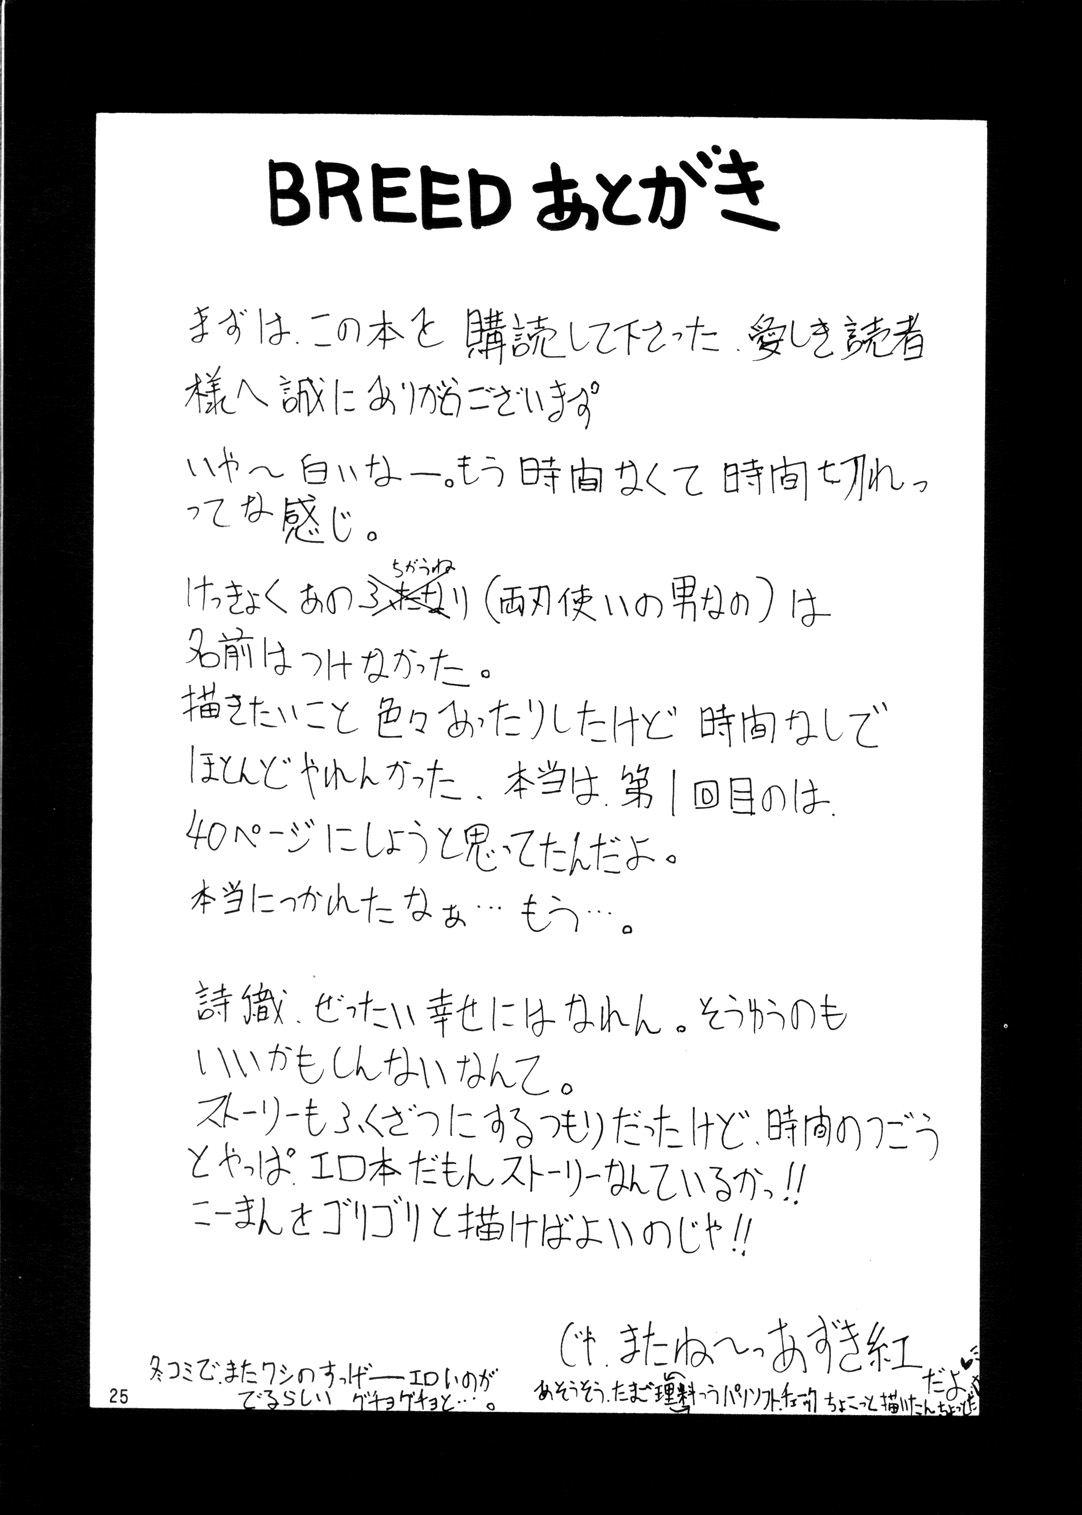 BREED あとがき
まずは、この本を購読して下さった、愛しき読者
様へ誠にありがとうございます。
いや〜白いなー。もう時間なくて時間切れっ
ってな感じ。
ちがうね
けっきょくあのふたなり(両刃使いの男なの)は
名前はつけなかった。
描きたいこと色々あったりしたけど時間なしで
ほとんどやれんかった、本当は、第1回目のは、
40ページにしようと思ってたんだよ。
本当につかれたなぁ…もう…。
詩織、ぜったい幸せにはなれん。そうゆうのも
いいかもしんないなんて。
ストーリーもふくざつにするつもりだったけど、時間のつごう
とやっぱ、エロ本だもんストーリーなんているかっ!!
こーまんをゴリゴリと描けばよいのじゃ!!
じゃ、またね〜っあずき紅
だよ♥
冬コミで、またワシのすっげーエロいのが
でるらしい グチョグチョと…。
あそうそう、たまご理料っつうパソソフト、チェック ちょこっと描いたんちょっとだ
25